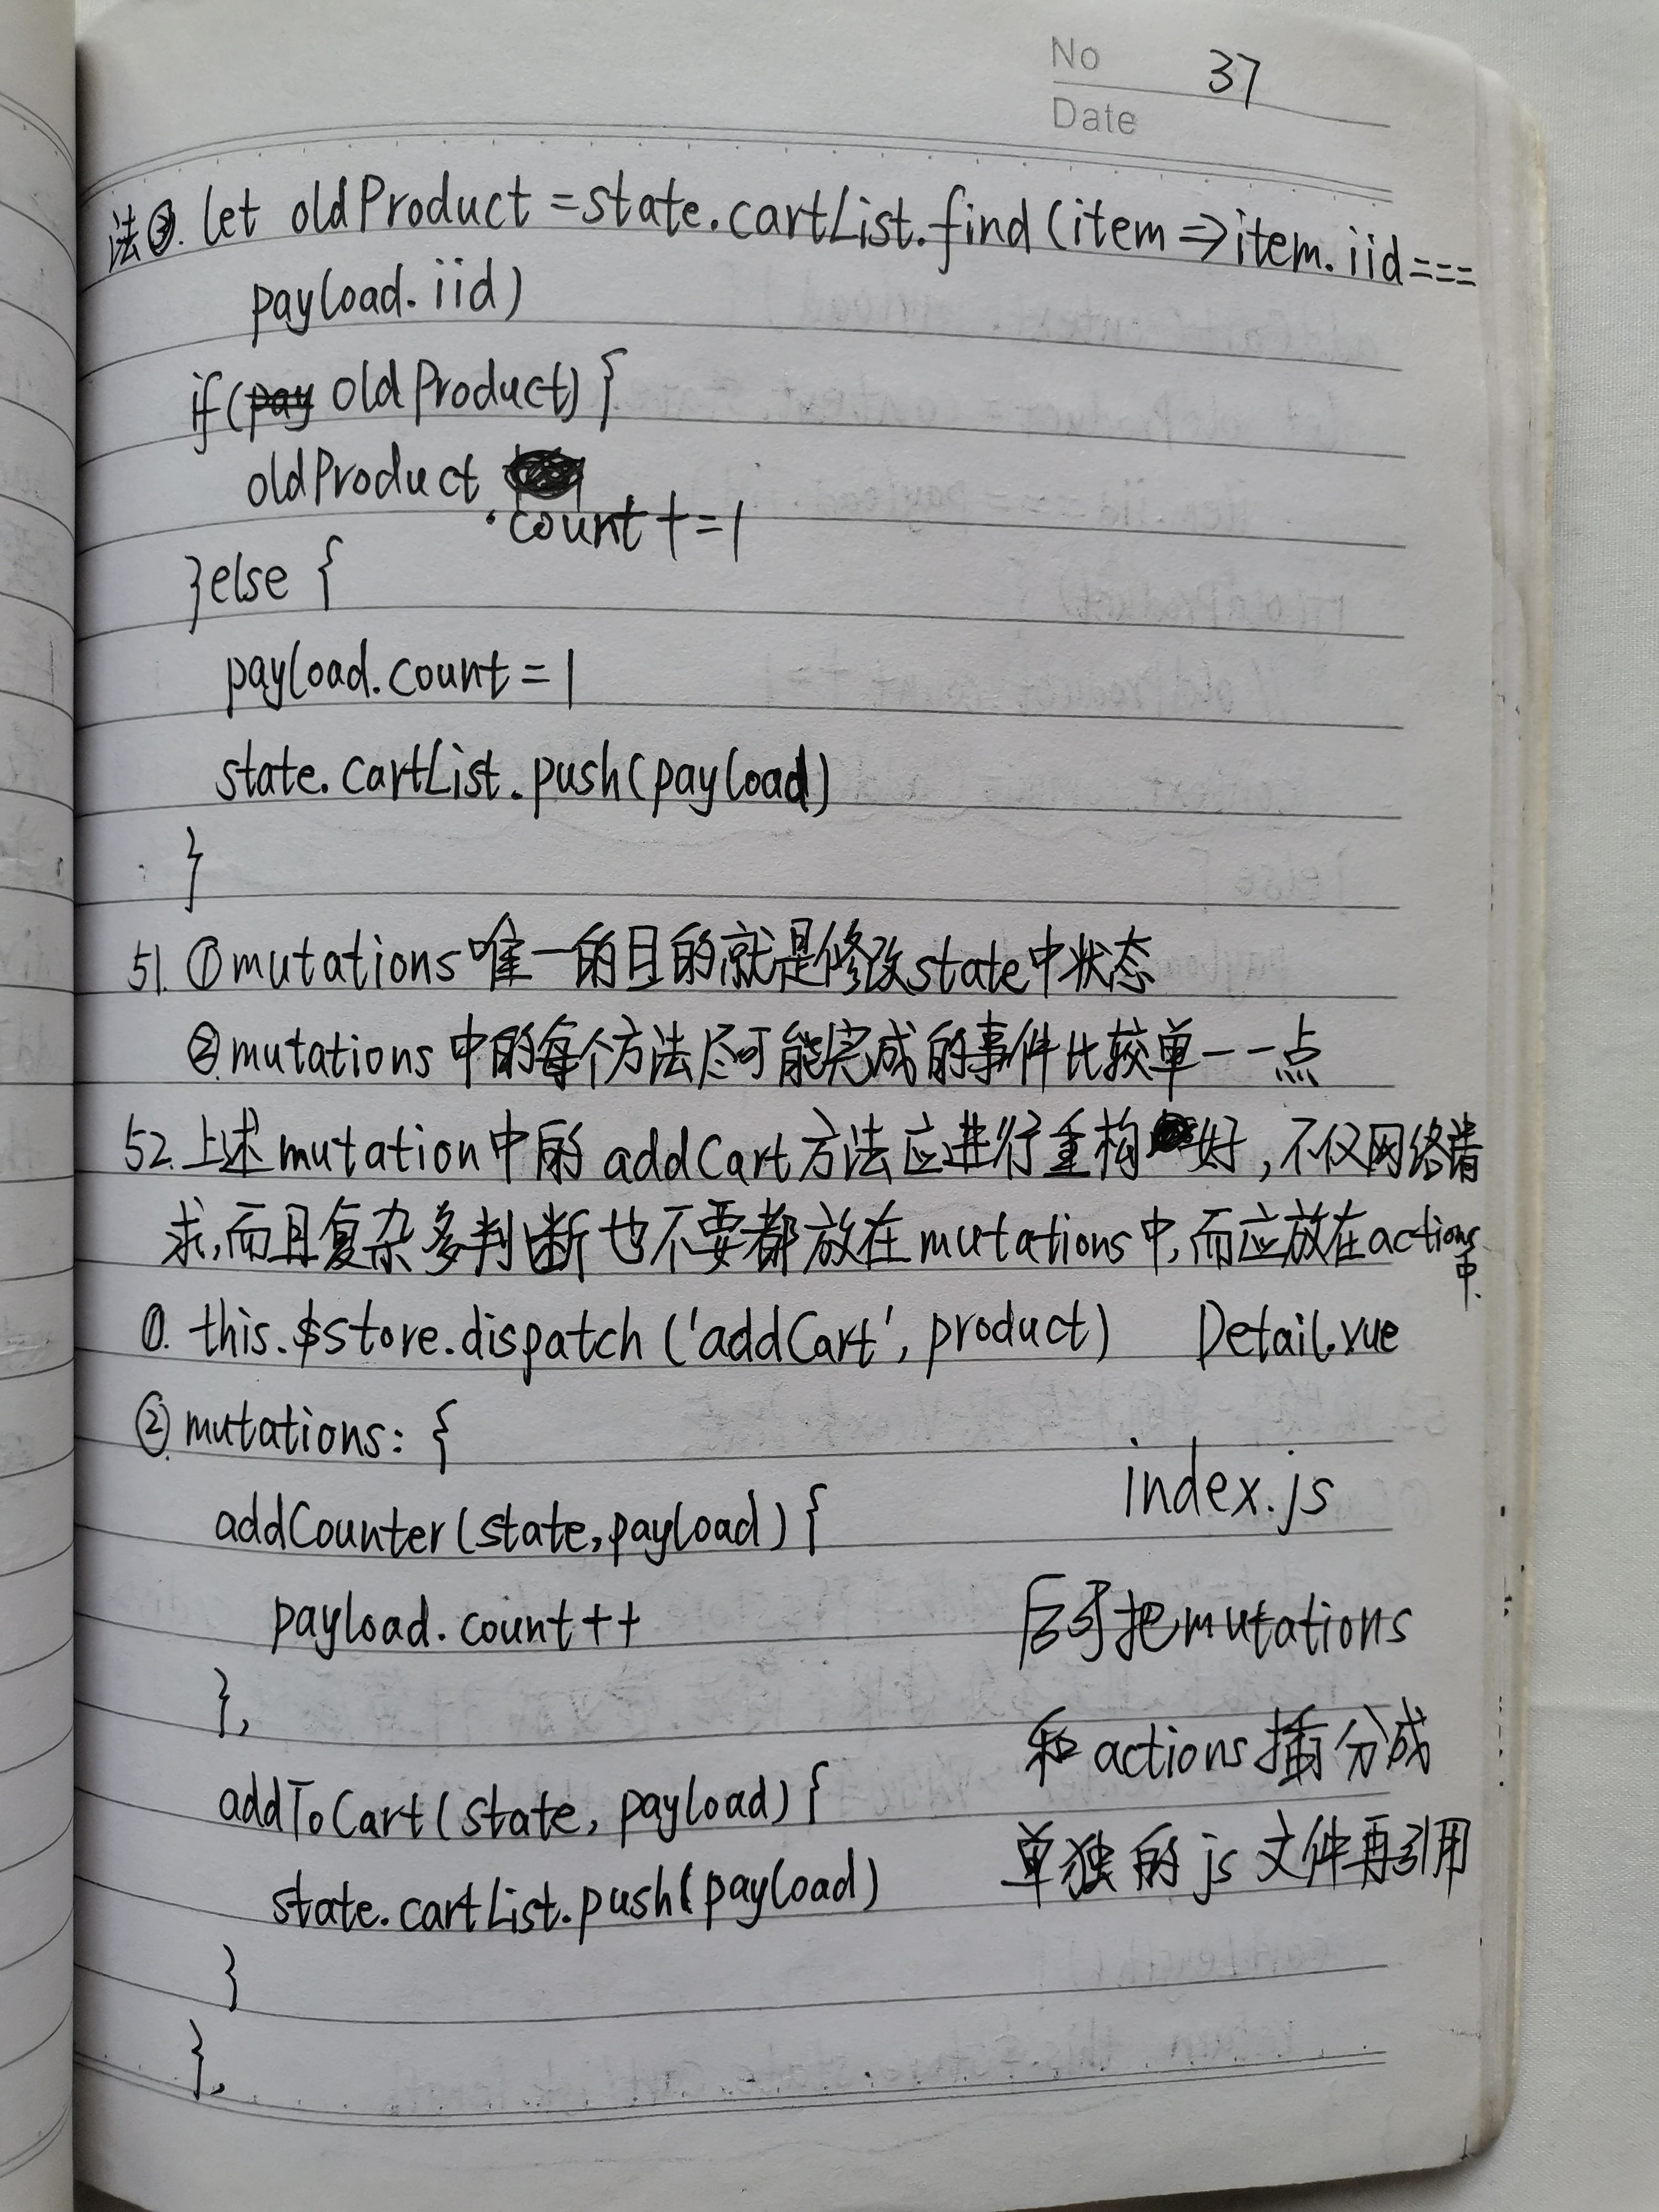 No 37
Date
法③. let oldProduct = state.cartList.find(item => item.iid ===
payload.iid)
if(pay oldProduct) {
oldProduct
.count += 1
}else {
payload.count = 1
state.cartList.push(payload)
}
51. ①mutations唯一的目的就是修改state中状态
②mutations中的每个方法尽可能完成的事件比较单一一点
52. 上述mutation中的addCart方法应进行重构好,不仅网络请
求,而且复杂多判断也不要都放在mutations中,而应放在actions
中.
①. this.$store.dispatch('addCart', product) Detail.vue
② mutations: {
index.js
addCounter(state, payload) {
payload.count++ 后可把mutations
},
和actions插分成
addToCart(state, payload) {
单独的js文件再引用
state.cartList.push(payload)
}
},